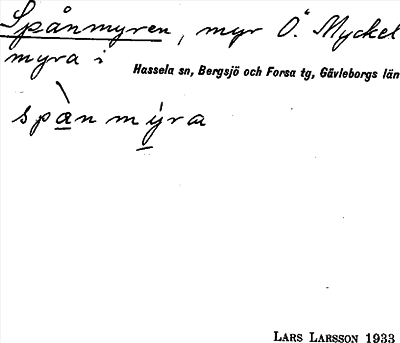 Spånmyren, myr Ö. Myckel
myra i
Hassela sn, Bergsjö och Forsa tg, Gävleborgs län
spàn mýra
LARS LARSSON 1933